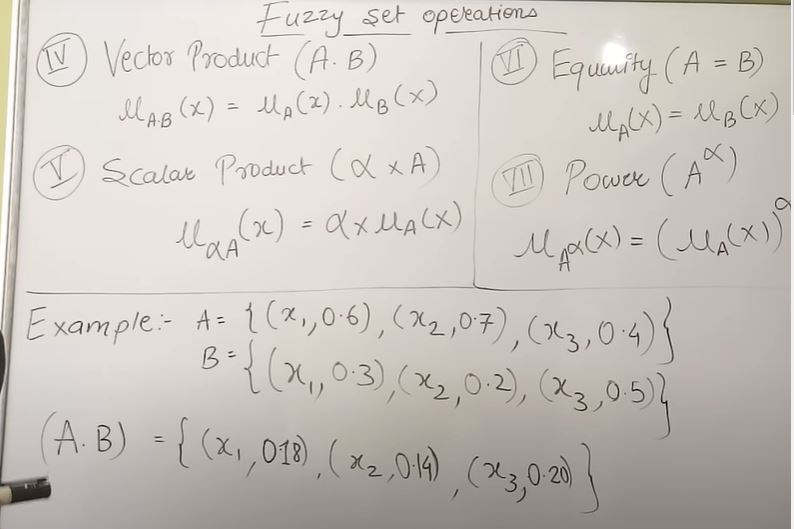 Fuzzy set operations
IV Vector Product (A.B)
μA.B(x) = μA(x) . μB(x)
V Scalar Product (α x A)
μαA(x) = α x μA(x)
VI Equality (A = B)
μA(x) = μB(x)
VII Power (A^α)
μA^α(x) = (μA(x))^α
Example:- A = {(x₁, 0.6), (x₂, 0.7), (x₃, 0.4)}
B = {(x₁, 0.3), (x₂, 0.2), (x₃, 0.5)}
(A.B) = {(x₁, 0.18), (x₂, 0.14), (x₃, 0.20)}